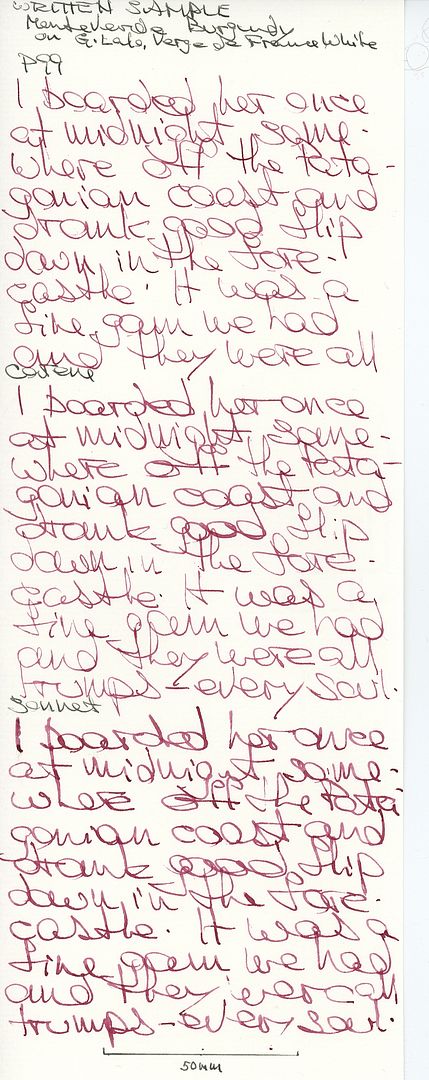 WRITTEN SAMPLE
Monteverde Burgundy
on G. Lalo, Verge de France White
P99
I boarded her once
at midnight some-
where off the Pata-
gonian coast and
drank good flip
down in the fore-
castle. It was a
fine gam we had
and they were all
Carene
I boarded her once
at midnight some-
where off the Pata-
gonian coast and
drank good flip
down in the fore-
castle. It was a
fine gam we had
and they were all
trumps - every soul.
Sonnet
I boarded her once
at midnight some-
where off the Pata
gonian coast and
drank good flip
down in the fore-
castle. It was a
fine gam we had
and they were all
trumps - every soul.
50mm